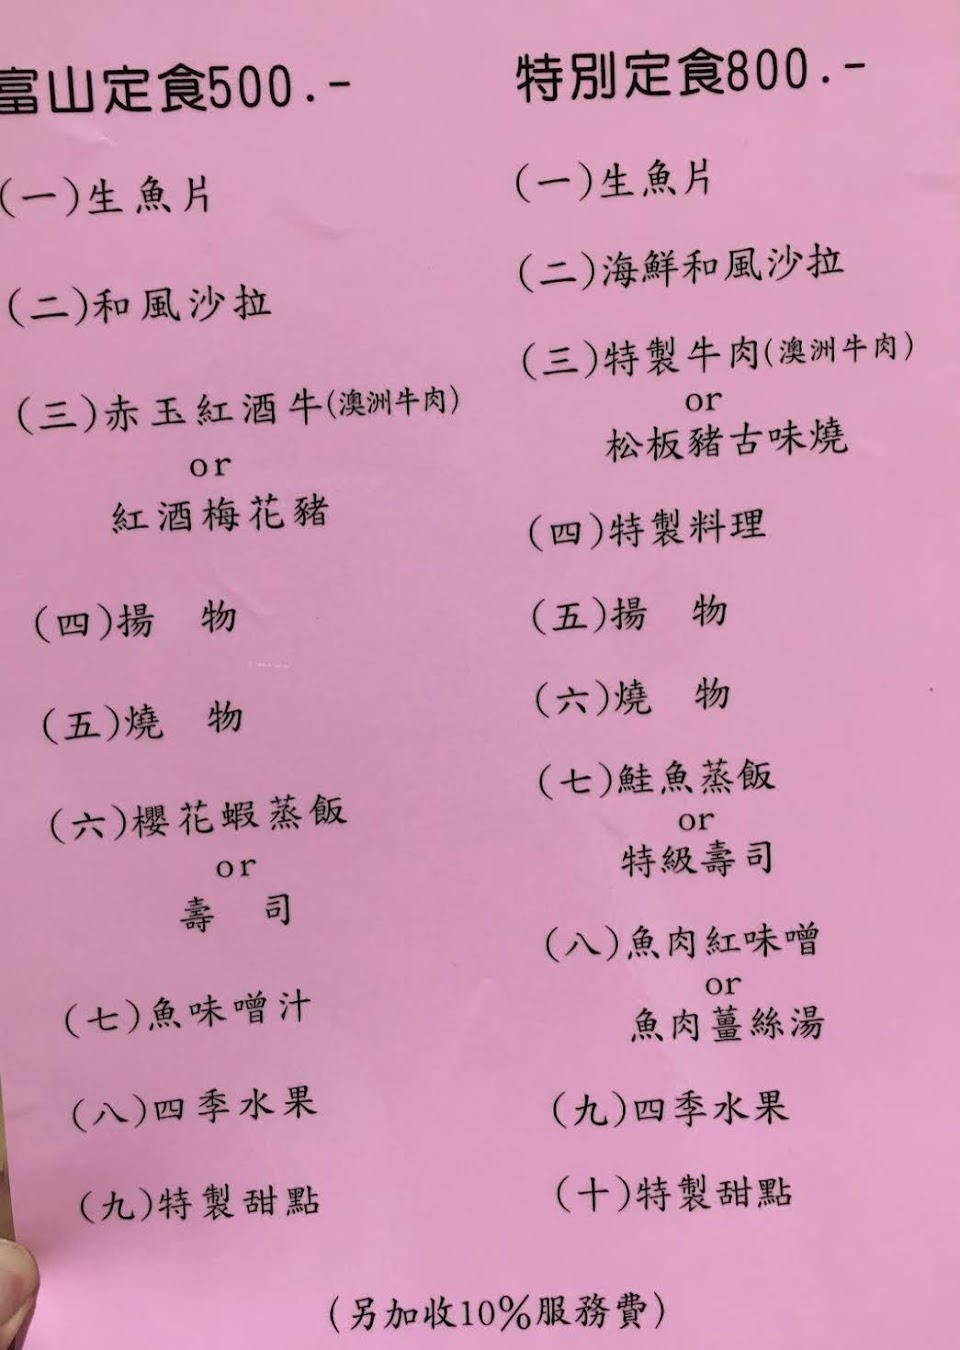 富山定食500.-
(一)生魚片
(二)和風沙拉
(三)赤玉紅酒牛(澳洲牛肉)
or
紅酒梅花豬
(四)揚 物
(五)燒 物
(六)櫻花蝦蒸飯
or
壽 司
(七)魚味噌汁
(八)四季水果
(九)特製甜點
特別定食800.-
(一)生魚片
(二)海鮮和風沙拉
(三)特製牛肉(澳洲牛肉)
or
松板豬古味燒
(四)特製料理
(五)揚 物
(六)燒 物
(七)鮭魚蒸飯
or
特級壽司
(八)魚肉紅味噌
or
魚肉薑絲湯
(九)四季水果
(十)特製甜點
(另加收10%服務費)